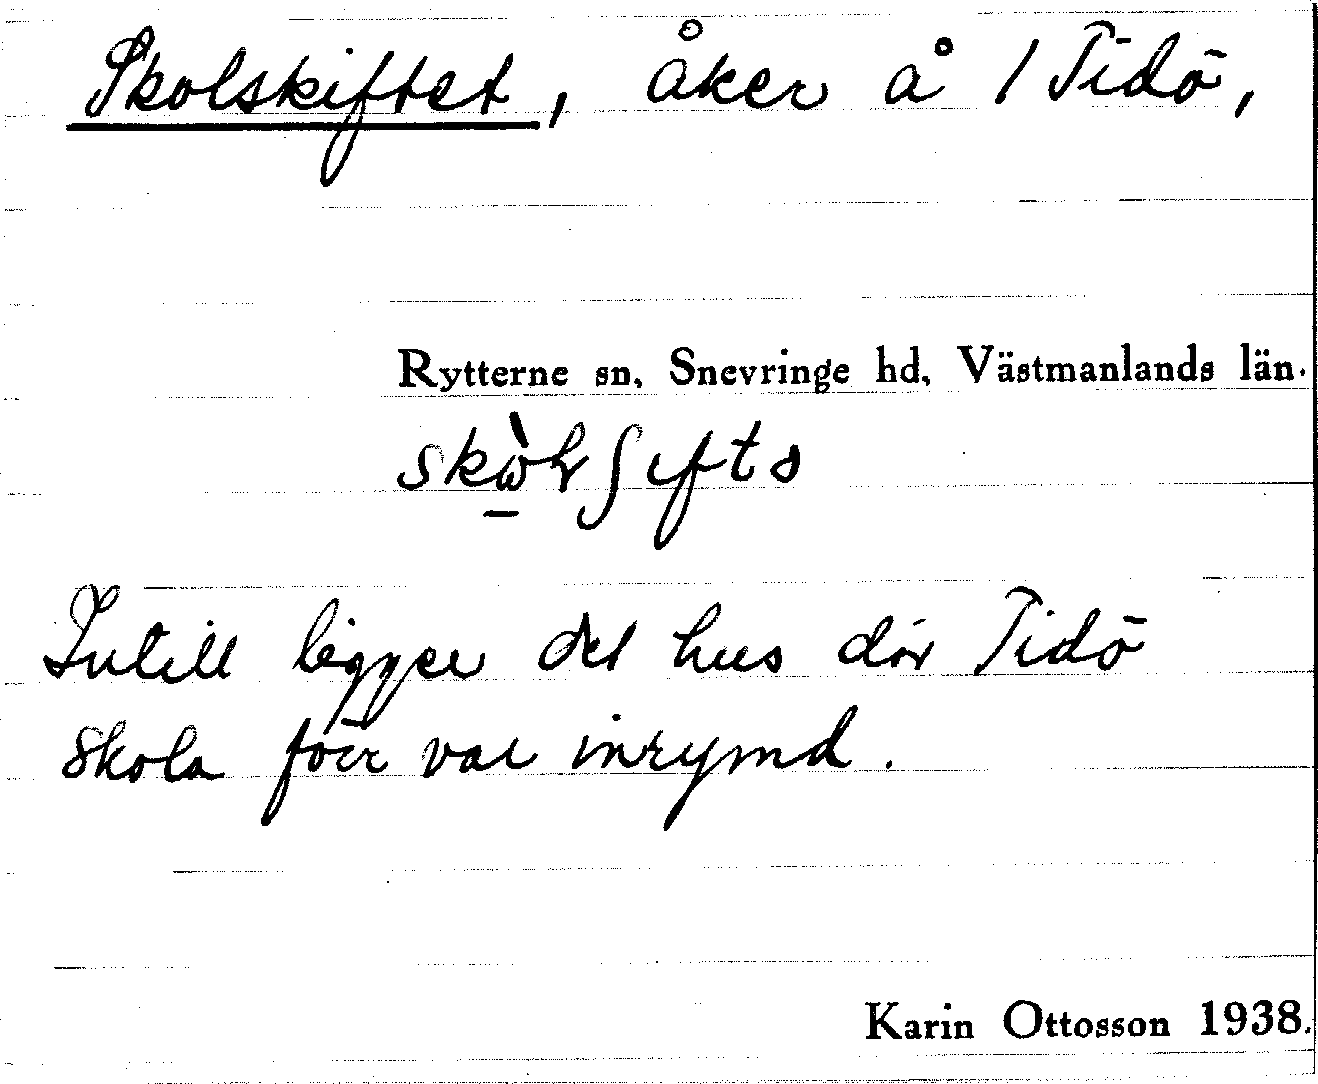 Skolskiftet, åker å 1 Tidö,
Rytterne sn, Snevringe hd, Västmanlands län.
Intill ligger det hus där Tidö
skola förr var inrymd.
Karin Ottosson 1938.